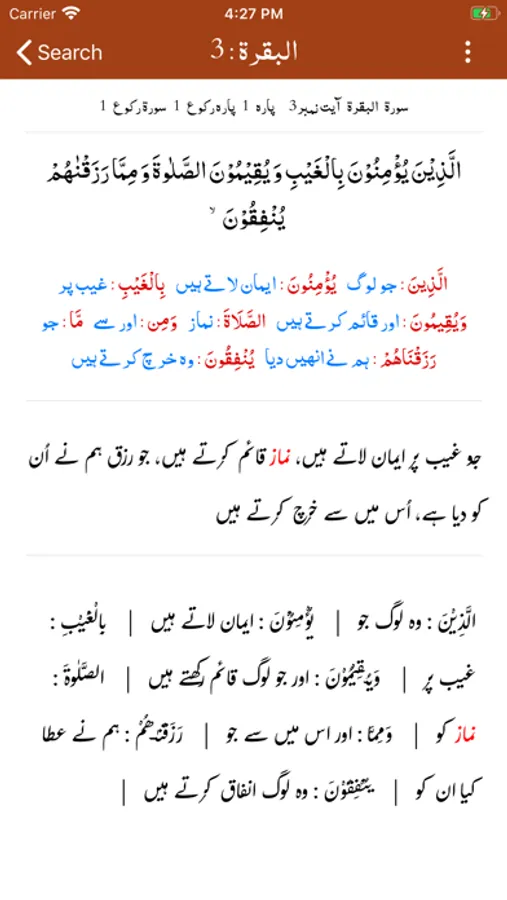 Carrier 4:27 PM
Search البقرة: 3
سورة البقرة آیت نمبر 3 پارہ 1 پارہ رکوع 1 سورۃ رکوع 1
الَّذِیْنَ یُؤْمِنُوْنَ بِالْغَیْبِ وَ یُقِیْمُوْنَ الصَّلٰوةَ وَ مِمَّا رَزَقْنٰهُمْ
یُنْفِقُوْنَ ۙ
الَّذِينَ : جو لوگ يُؤْمِنُونَ : ایمان لاتے ہیں بِالْغَيْبِ : غیب پر
وَيُقِيمُونَ : اور قائم کرتے ہیں الصَّلَاةَ : نماز وَمِن : اور سے مَّا : جو
رَزَقْنَاهُمْ : ہم نے انھیں دیا يُنْفِقُونَ : وہ خرچ کرتے ہیں
جو غیب پر ایمان لاتے ہیں، نماز قائم کرتے ہیں، جو رزق ہم نے اُن
کو دیا ہے، اُس میں سے خرچ کرتے ہیں
الَّذِيْنَ : وہ لوگ جو | يُؤْمِنُوْنَ : ایمان لاتے ہیں | بِالْغَيْبِ :
غیب پر | وَيُقِيْمُوْنَ : اور جو لوگ قائم رکھتے ہیں | الصَّلٰوةَ :
نماز کو | وَمِمَّا : اور اس میں سے جو | رَزَقْنٰھُمْ : ہم نے عطا
کیا ان کو | يُنْفِقُوْنَ : وہ لوگ انفاق کرتے ہیں |